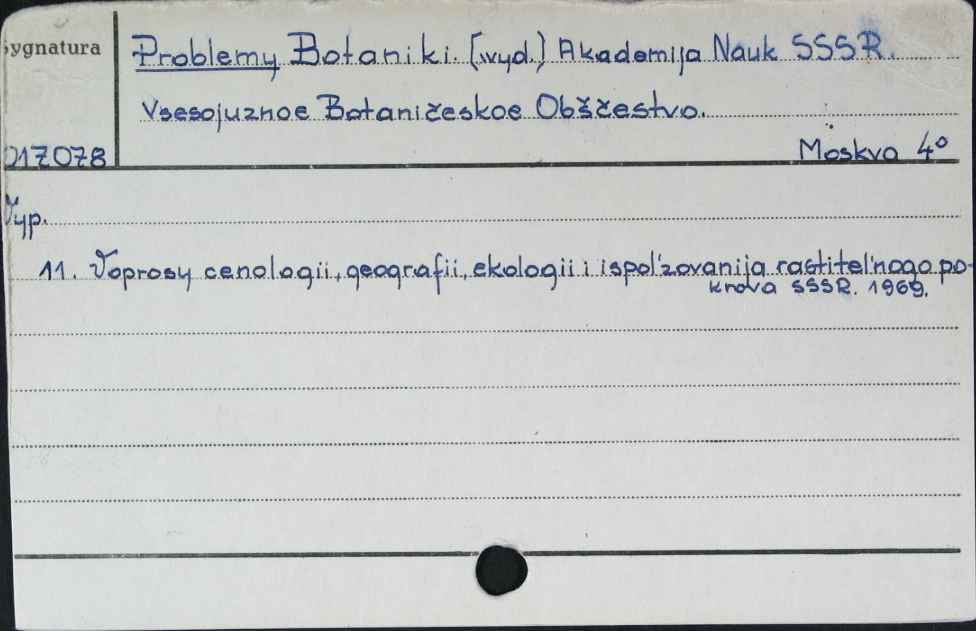 Sygnatura
Problemy Botaniki. [wyd.] Akademija Nauk SSSR.
Vsesojuznoe Botaničeskoe Obščestvo.
017078
Moskva 4°
Vyp.
11. Voprosy cenologii, geografii, ekologii i ispol'zovanija rastitel'nogo po-
krova SSSR. 1969.